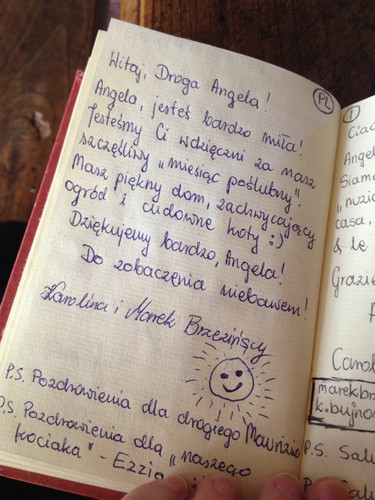 PL
Witaj, Droga Angela!
Angela, jesteś bardzo miła!
Jesteśmy Ci wdzięczni za nasz
szczęśliwy „miesiąc poślubny".
Masz piękny dom, zachwycający
ogród i cudowne koty :)
Dziękujemy bardzo, Angela!
Do zobaczenia niebawem!
Karolina i Marek Brzezińscy
P.S. Pozdrowienia dla drogiego Maurizio
P.S. Pozdrowienia dla „naszego
kociaka" - Ezzio
I
Ciao
Angel
Siamo
„nuzia
casa,
& le
Grazie
Carol
marekbrz
k.bujno
P.S. Salu